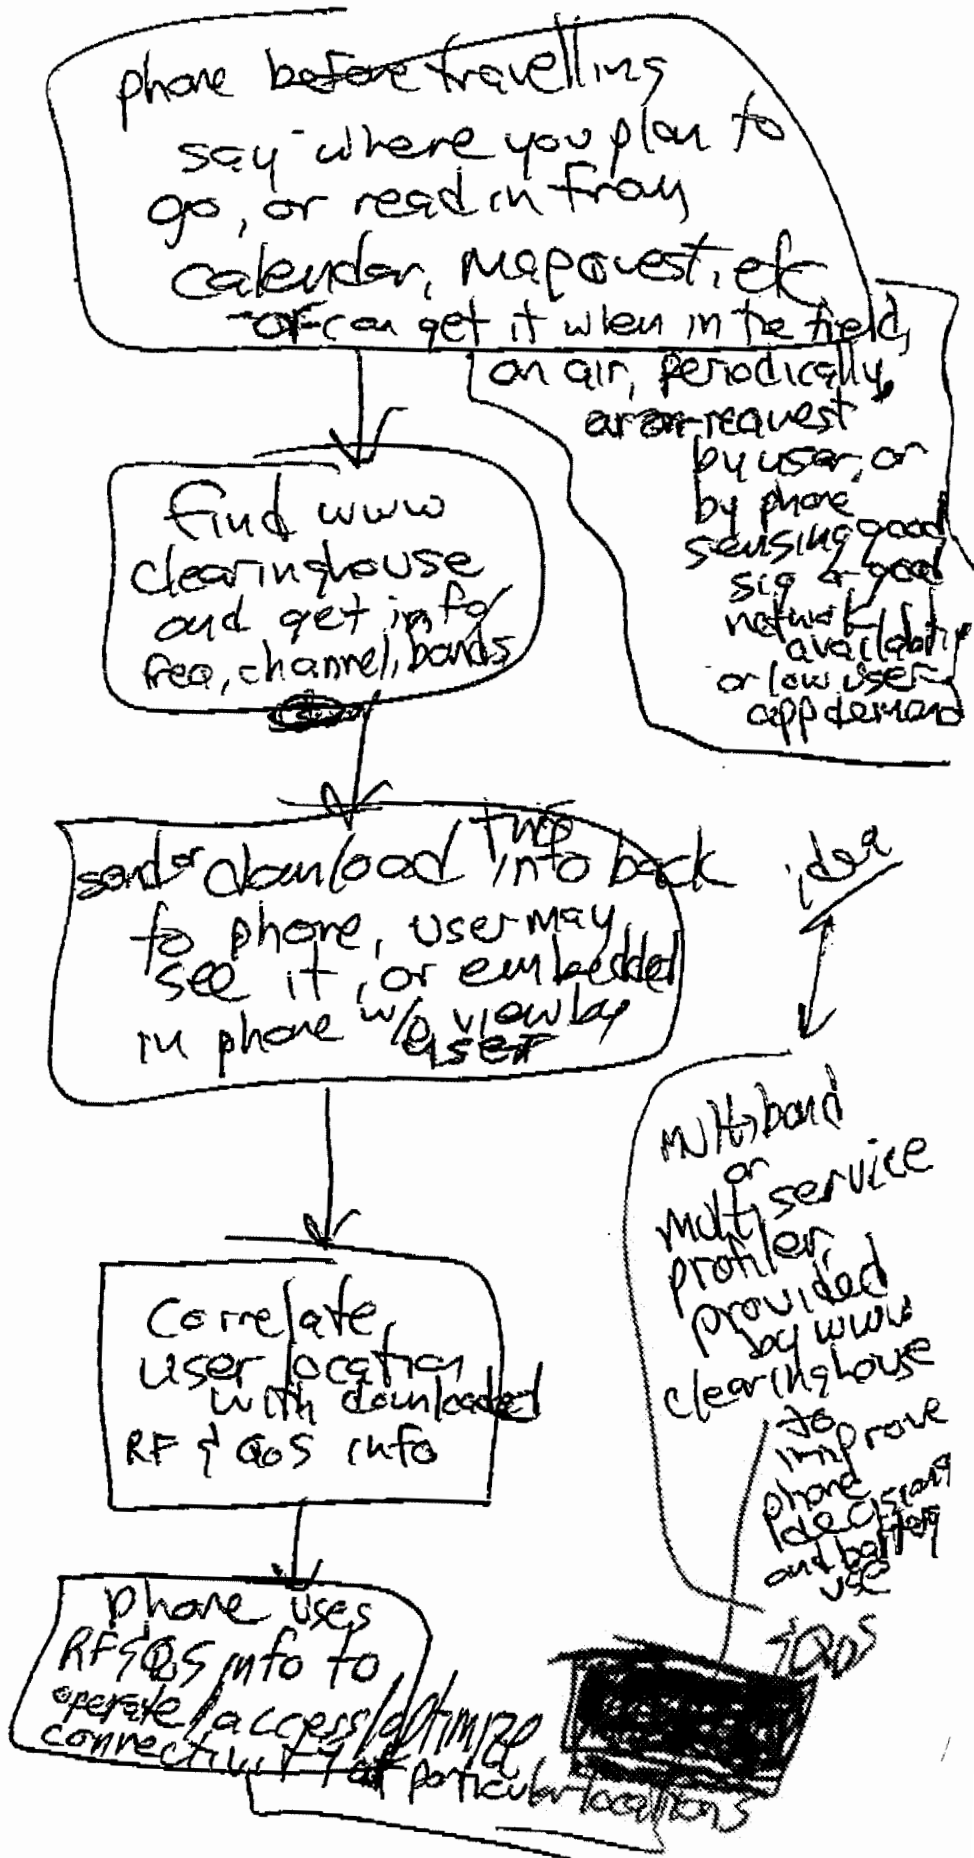 phone before travelling
say where you plan to
go, or read in from
calendar, Mapquest, etc
or can get it when in the field,
on air, periodically,
or on request
by user, or
by phone
sensing good
sig or good
network
availability
or low user
app demand
find www
clearinghouse
and get info/
freq, channel, bands
send or download this info back
to phone, user may
see it, or embedded
in phone w/o view by
user
idea
Multiband
or
Multi service
profiler,
provided
by www
clearinghouse
to
improve
phone
decisions
and battery
use
+ QoS
Correlate
user location
with downloaded
RF & QoS info
phone uses
RF & QoS info to
operate/access/optimize
connectivity at particular locations